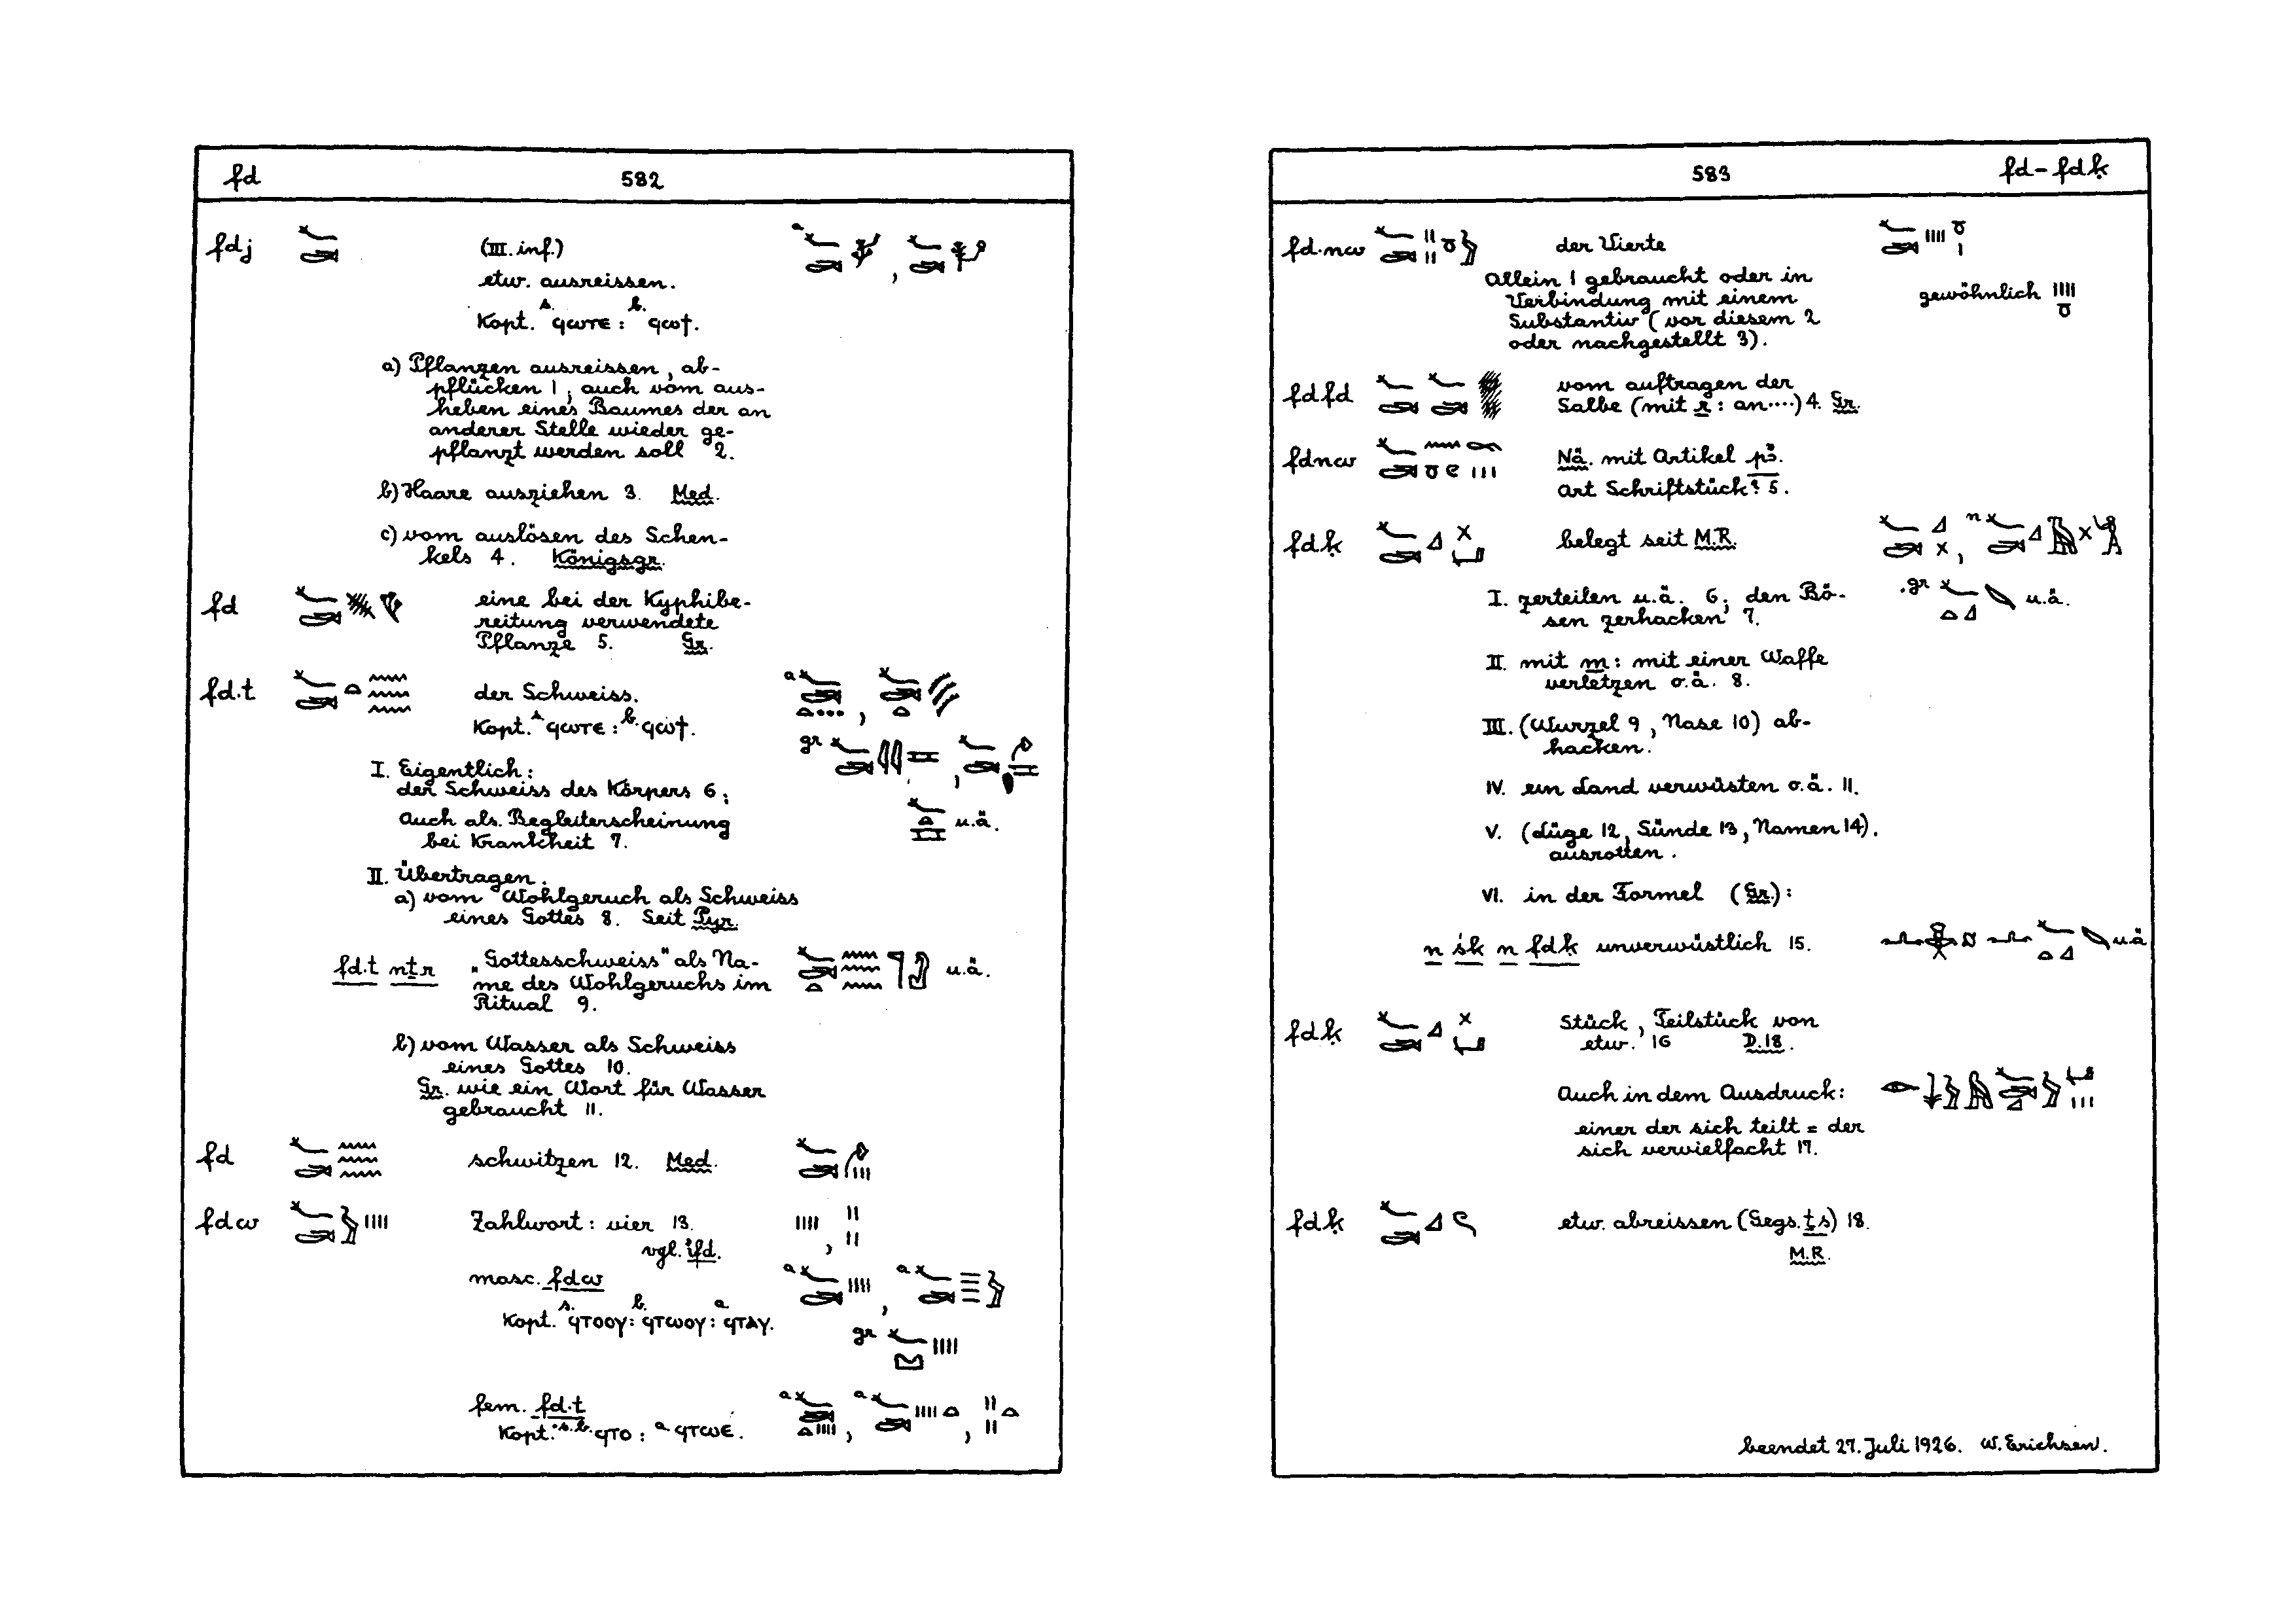 fd 582
fdj (III. inf.)
etw. ausreissen.
Kopt. s. ϥωτε : b. ϥωϯ.
a) Pflanzen ausreissen, ab-
pflücken 1; auch vom aus-
heben eines Baumes der an
anderer Stelle wieder ge-
pflanzt werden soll 2.
b) Haare ausziehen 3. Med.
c) vom auslösen des Schen-
kels 4. Königsgr.
fd eine bei der Kyphibe-
reitung verwendete
Pflanze 5. Gr.
fd.t der Schweiss.
Kopt. s. ϥωτε : b. ϥωϯ.
gr
I. Eigentlich:
der Schweiss des Körpers 6;
Auch als Begleiterscheinung u.ä.
bei Krankheit 7.
II. Übertragen.
a) vom Wohlgeruch als Schweiss
eines Gottes 8. Seit Pyr.
fd.t nṯr "Gottesschweiss" als Na- u.ä.
me des Wohlgeruchs im
Ritual 9.
b) vom Wasser als Schweiss
eines Gottes 10.
Gr. wie ein Wort für Wasser
gebraucht 11.
fd schwitzen 12. Med.
fdw Zahlwort: vier 13.
vgl. ifd.
masc. fdw
Kopt. s. ϥτοου: b. ϥτωου: a ϥταυ.
gr
fem. fd.t
Kopt. s.b. ϥτο : a ϥτωε.
583 fd - fdḳ
fd.nw der Vierte
Allein 1 gebraucht oder in
Verbindung mit einem gewöhnlich
Substantiv (vor diesem 2
oder nachgestellt 3).
fdfd vom auftragen der
Salbe (mit r : an....) 4. Gr.
fdnw Nä. mit Artikel pꜣ.
Art Schriftstück? 5.
fdḳ belegt seit M.R.
I. zerteilen u.ä. 6; den Bö- gr u.ä.
sen zerhacken 7.
II. mit m: mit einer Waffe
verletzen o.ä. 8.
III. (Wurzel 9, Nase 10) ab-
hacken.
IV. ein Land verwüsten o.ä. 11.
V. (Lüge 12, Sünde 13, Namen 14).
ausrotten.
VI. in der Formel (Gr.):
n śk n fdḳ unverwüstlich 15. u.ä
fdḳ Stück, Teilstück von
etw. 16 D.18.
Auch in dem Ausdruck:
einer der sich teilt = der
sich vervielfacht 17.
fdḳ etw. abreissen (Gegs. ṯs) 18.
M.R.
beendet 27. Juli 1926. W. Erichsen.